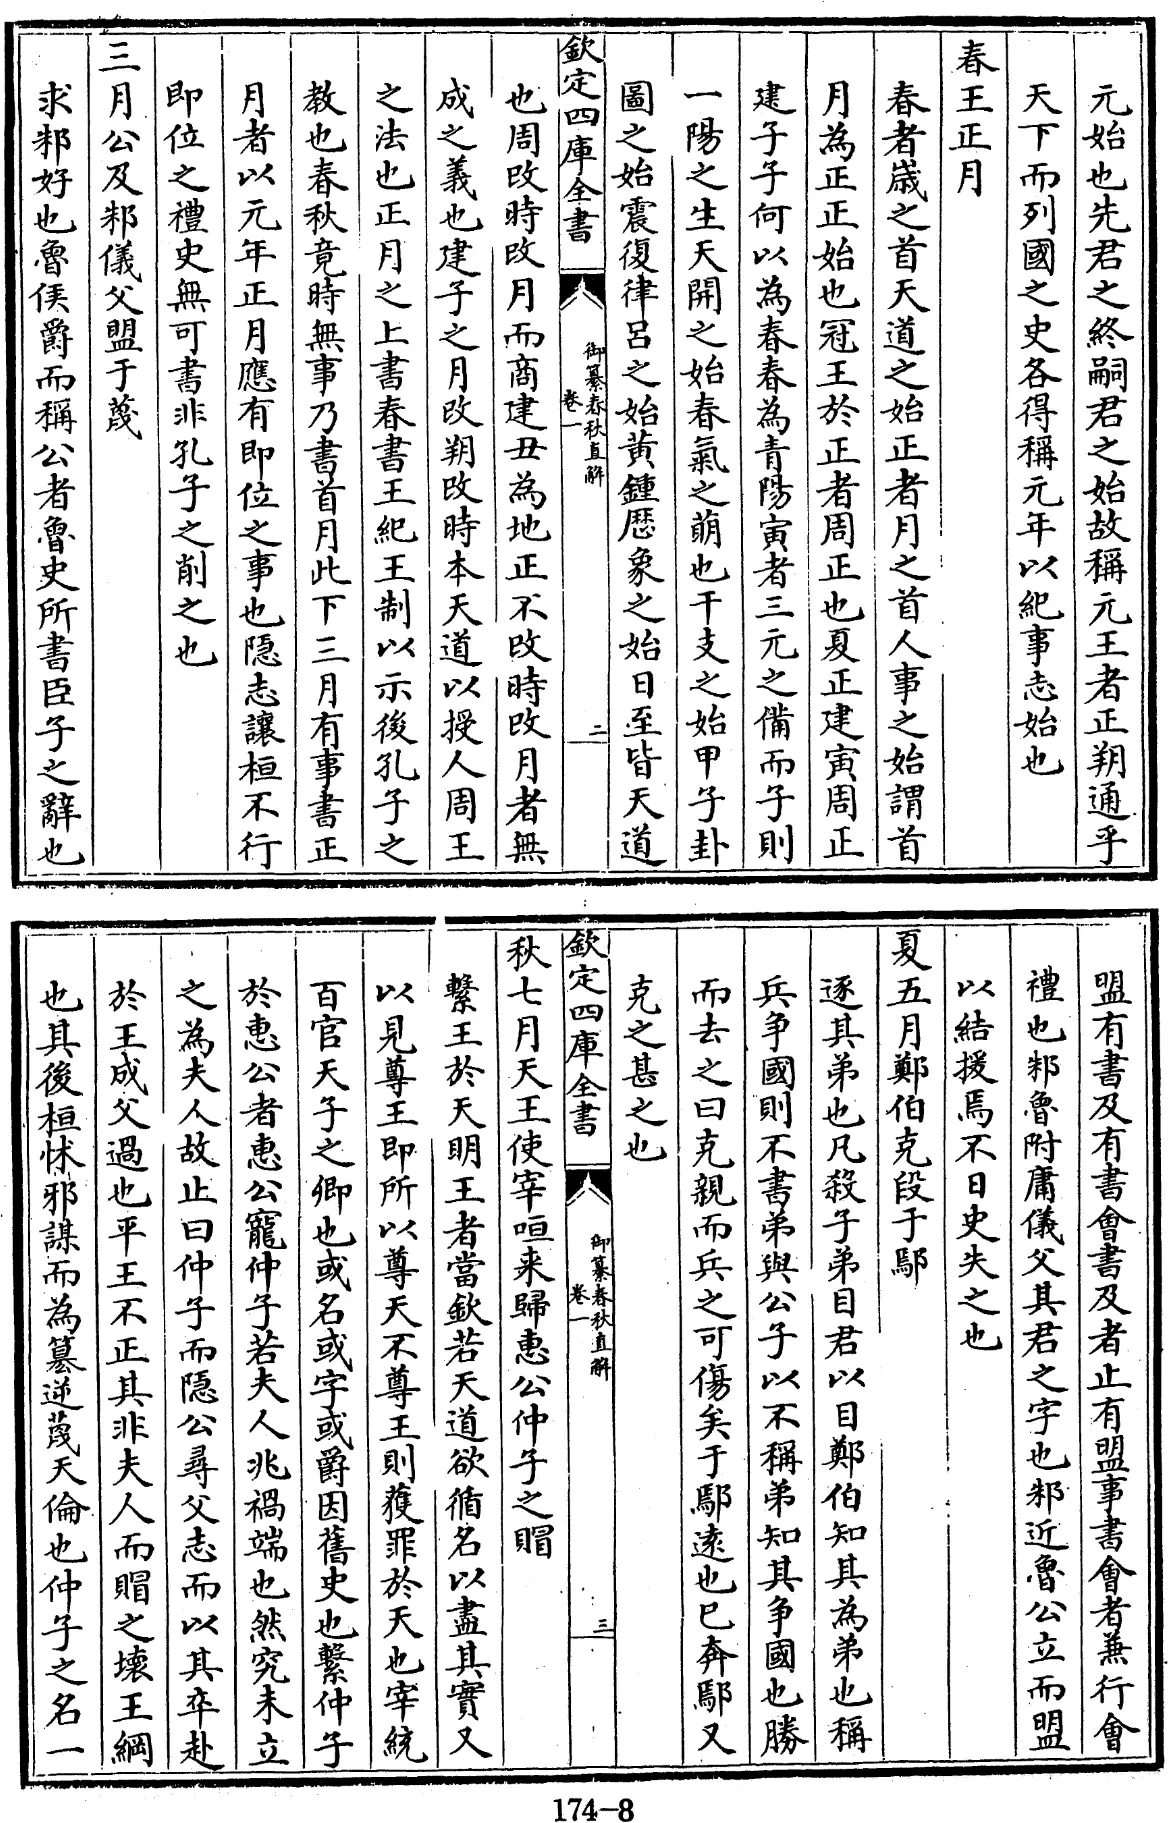 元始也先君之終嗣君之始故稱元王者正朔通乎
天下而列國之史各得稱元年以紀事志始也
春王正月
春者歲之首天道之始正者月之首人事之始謂首
月為正正始也冠王於正者周正也夏正建寅周正
建子子何以為春春為青陽寅者三元之備而子則
一陽之生天開之始春氣之萌也干支之始甲子卦
圖之始震復律呂之始黃鍾厯象之始日至皆天道
欽定四庫全書
御纂春秋直解
卷一
二
也周改時改月而商建丑為地正不改時改月者無
成之義也建子之月改朔改時本天道以授人周王
之法也正月之上書春書王紀王制以示後孔子之
教也春秋竟時無事乃書首月此下三月有事書正
月者以元年正月應有即位之事也隐志讓桓不行
即位之禮史無可書非孔子之削之也
三月公及邾儀父盟于蔑
求邾好也魯侯爵而稱公者魯史所書臣子之辭也
盟有書及有書會書及者止有盟事書會者兼行會
禮也邾魯附庸儀父其君之字也邾近魯公立而盟
以結援焉不日史失之也
夏五月鄭伯克段于鄢
逐其弟也凡殺子弟目君以目鄭伯知其為弟也稱
兵争國則不書弟與公子以不稱弟知其争國也勝
而去之曰克親而兵之可傷矣于鄢逺也已奔鄢又
克之甚之也
欽定四庫全書
御纂春秋直解
卷一
三
秋七月天王使宰咺来歸惠公仲子之賵
繫王於天明王者當欽若天道欲循名以盡其實又
以見尊王即所以尊天不尊王則獲罪於天也宰統
百官天子之卿也或名或字或爵因舊史也繫仲子
於惠公者惠公寵仲子若夫人兆禍端也然究未立
之為夫人故止曰仲子而隱公尋父志而以其卒赴
於王成父過也平王不正其非夫人而賵之壞王綱
也其後桓怵邪謀而為簒逆蔑天倫也仲子之名一
174-8